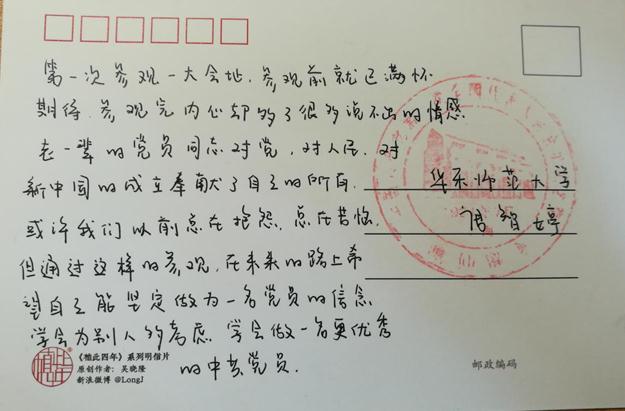 第一次参观一大会址，参观前就已满怀
期待，参观完内心却多了很多说不出的情感
老一辈的党员同志对党，对人民，对
新中国的成立奉献了自己的所有，
或许我们以前总在抱怨，总在苦恼，
但通过这样的参观，在未来的路上希
望自己能坚定做为一名党员的信念
学会为别人多考虑，学会做一名更优秀
的中共党员.
华东师范大学
智婷
《楠此四年》系列明信片
原创作者：吴晓隆
新浪微博 @LongJ
邮政编码